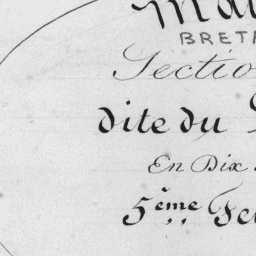 Mai
BRETA
Section
dite du
En Dix
5ème Feu